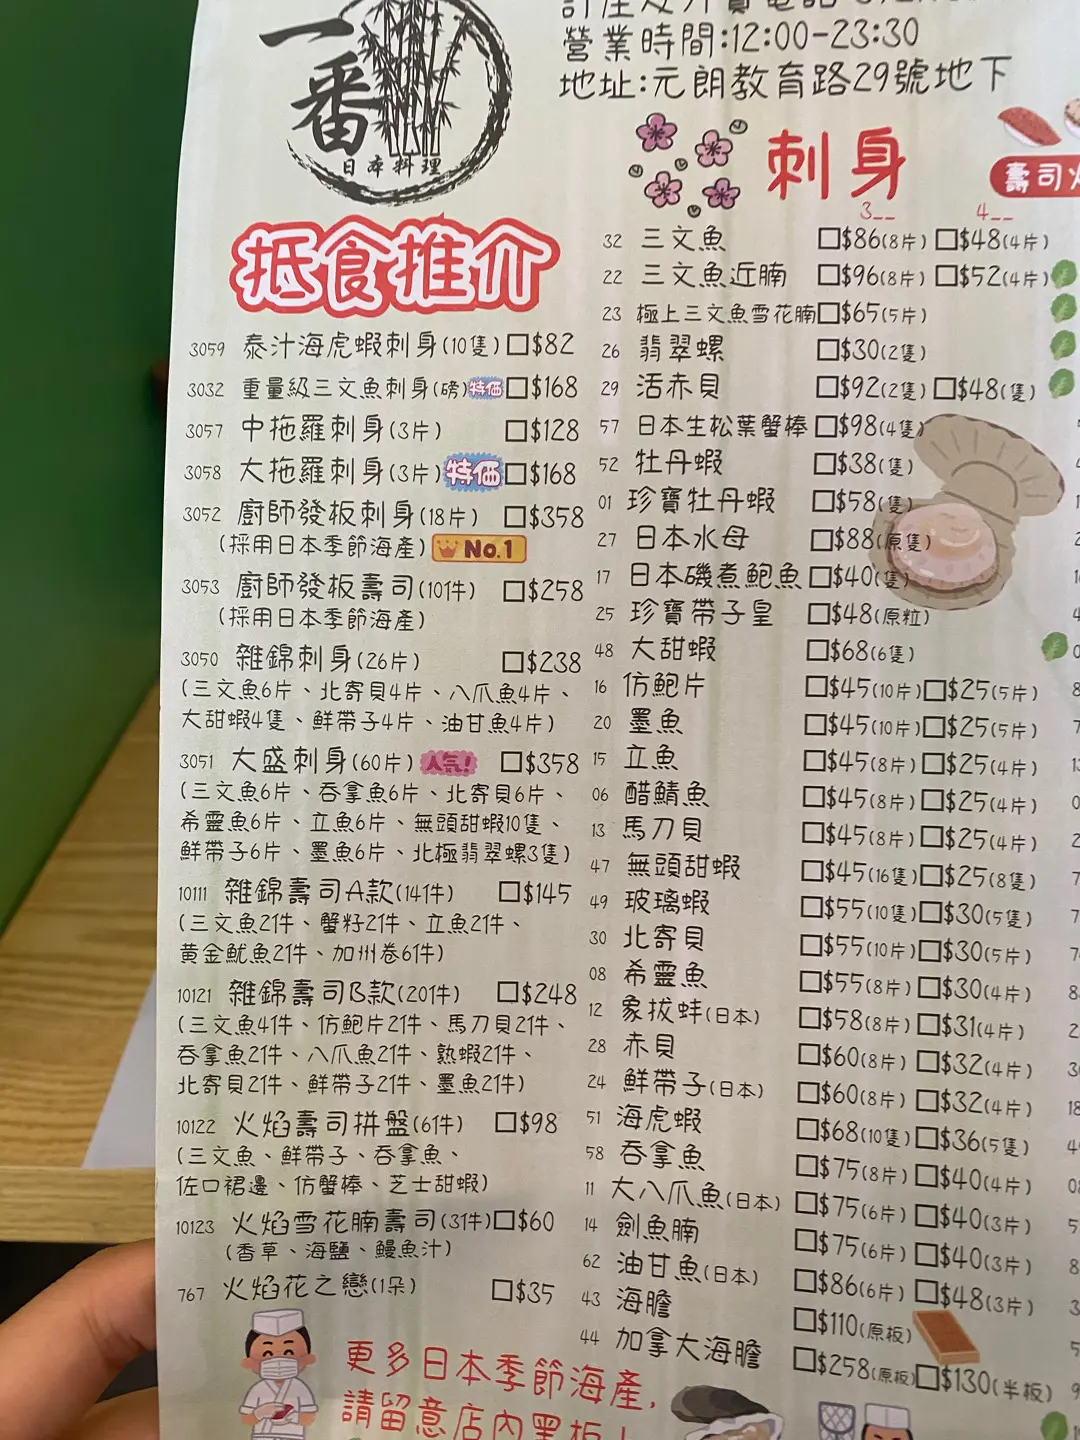 一番
日本料理
營業時間:12:00-23:30
地址:元朗教育路29號地下
抵食推介
3059 泰汁海虎蝦刺身(10隻) □$82
3032 重量級三文魚刺身(磅) 特価 □$168
3057 中拖羅刺身(3片) □$128
3058 大拖羅刺身(3片) 特価 □$168
3052 廚師發板刺身(18片) □$358
(採用日本季節海產) No.1
3053 廚師發板壽司(10件) □$258
(採用日本季節海產)
3050 雜錦刺身(26片) □$238
(三文魚6片、北寄貝4片、八爪魚4片、
大甜蝦4隻、鮮帶子4片、油甘魚4片)
3051 大盛刺身(60片) 人気! □$358
(三文魚6片、吞拿魚6片、北寄貝6片、
希靈魚6片、立魚6片、無頭甜蝦10隻、
鮮帶子6片、墨魚6片、北極翡翠螺3隻)
10111 雜錦壽司A款(14件) □$145
(三文魚2件、蟹籽2件、立魚2件、
黃金魷魚2件、加州卷6件)
10121 雜錦壽司B款(20件) □$248
(三文魚4件、仿鮑片2件、馬刀貝2件、
吞拿魚2件、八爪魚2件、熟蝦2件、
北寄貝2件、鮮帶子2件、墨魚2件)
10122 火焰壽司拼盤(6件) □$98
(三文魚、鮮帶子、吞拿魚、
佐口裙邊、仿蟹棒、芝士甜蝦)
10123 火焰雪花腩壽司(3件) □$60
(香草、海鹽、鰻魚汁)
767 火焰花之戀(1朵) □$35
更多日本季節海產,
請留意店內黑板!
刺身
3__ 4__
32 三文魚 □$86(8片) □$48(4片)
22 三文魚近腩 □$96(8片) □$52(4片)
23 極上三文魚雪花腩 □$65(5片)
26 翡翠螺 □$30(2隻)
29 活赤貝 □$92(2隻) □$48(隻)
57 日本生松葉蟹棒 □$98(4隻)
52 牡丹蝦 □$38(隻)
01 珍寶牡丹蝦 □$58(隻)
27 日本水母 □$88(原隻)
17 日本磯煮鮑魚 □$40(隻)
25 珍寶帶子皇 □$48(原粒)
48 大甜蝦 □$68(6隻)
16 仿鮑片 □$45(10片) □$25(5片)
20 墨魚 □$45(10片) □$25(5片)
15 立魚 □$45(8片) □$25(4片)
06 醋鯖魚 □$45(8片) □$25(4片)
13 馬刀貝 □$45(8片) □$25(4片)
47 無頭甜蝦 □$45(16隻) □$25(8隻)
49 玻璃蝦 □$55(10隻) □$30(5隻)
30 北寄貝 □$55(10片) □$30(5片)
08 希靈魚 □$55(8片) □$30(4片)
12 象拔蚌(日本) □$58(8片) □$31(4片)
28 赤貝 □$60(8片) □$32(4片)
24 鮮帶子(日本) □$60(8片) □$32(4片)
51 海虎蝦 □$68(10隻) □$36(5隻)
58 吞拿魚 □$75(8片) □$40(4片)
11 大八爪魚(日本) □$75(6片) □$40(3片)
14 劍魚腩 □$75(6片) □$40(3片)
62 油甘魚(日本) □$86(6片) □$48(3片)
43 海膽 □$110(原板)
44 加拿大海膽 □$258(原板) □$130(半板)
壽司